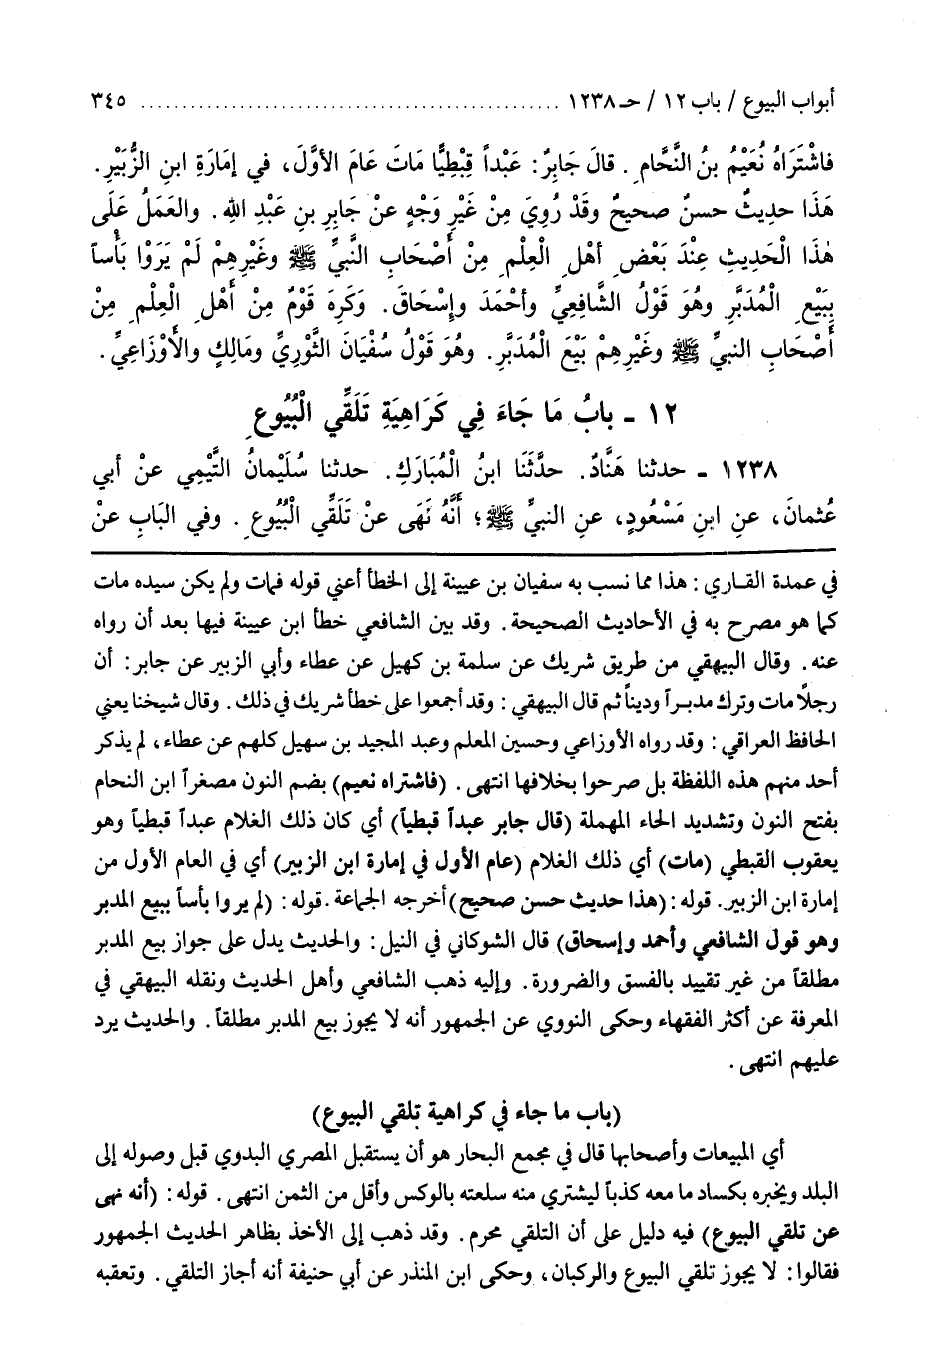 أبواب البيوع / باب ١٢ / حـ ١٢٣٨ ................................................ ٣٤٥
فاشْتَرَاهُ نُعَيْمُ بنُ النَّحَّامِ. قالَ جَابِرٌ: عَبْداً قِبْطِيًّا مَاتَ عَامَ الأوَّلَ، في إمَارَةِ ابنِ الزُّبَيْرِ.
هَذَا حدِيثٌ حسنٌ صحيحٌ وقَدْ رُوِيَ مِنْ غَيْرِ وَجْهٍ عنْ جَابِرِ بنِ عَبْدِ اللهِ. والعَمَلُ عَلَى
هٰذَا الْحَدِيثِ عِنْدَ بَعْضِ أهْلِ الْعِلْمِ مِنْ أَصْحَابِ النَّبيِّ ﷺ وغَيْرِهِمْ لَمْ يَرَوْا بَأْساً
بِبَيْعِ الْمُدَبَّرِ وهُوَ قَوْلُ الشَّافعِيِّ وأحْمَدَ وإسْحَاقَ. وَكَرِهَ قَوْمٌ مِنْ أَهْلِ الْعِلْمِ مِنْ
أَصْحَابِ النبيِّ ﷺ وغَيْرِهِمْ بَيْعَ الْمُدَبَّرِ. وهُوَ قَوْلُ سُفْيَانَ الثَّوْرِيِّ ومَالِكٍ والأَوْزَاعِيِّ.
١٢ ـ بابُ مَا جَاءَ فِي كَرَاهِيَةِ تَلَقِّي الْبُيُوعِ
١٢٣٨ ـ حدثنا هَنَّادٌ. حدَّثَنَا ابنُ الْمُبَارَكِ. حدثنا سُلَيْمانُ التَّيْمِي عنْ أبي
عُثمانَ، عنِ ابنِ مَسْعُودٍ، عنِ النبيِّ ﷺ؛ أَنَّهُ نَهَى عنْ تَلَقِّي الْبُيُوعِ. وفي البَابِ عنْ
في عمدة القاري: هذا مما نسب به سفيان بن عيينة إلى الخطأ أعني قوله فمات ولم يكن سيده مات
كما هو مصرح به في الأحاديث الصحيحة. وقد بين الشافعي خطأ ابن عيينة فيها بعد أن رواه
عنه. وقال البيهقي من طريق شريك عن سلمة بن كهيل عن عطاء وأبي الزبير عن جابر: أن
رجلاً مات وترك مدبراً وديناً ثم قال البيهقي: وقد أجمعوا على خطأ شريك في ذلك. وقال شيخنا يعني
الحافظ العراقي: وقد رواه الأوزاعي وحسين المعلم وعبد المجيد بن سهيل كلهم عن عطاء، لم يذكر
أحد منهم هذه اللفظة بل صرحوا بخلافها انتهى. (فاشتراه نعيم) بضم النون مصغراً ابن النحام
بفتح النون وتشديد الحاء المهملة (قال جابر عبداً قبطياً) أي كان ذلك الغلام عبداً قبطياً وهو
يعقوب القبطي (مات) أي ذلك الغلام (عام الأول في إمارة ابن الزبير) أي في العام الأول من
إمارة ابن الزبير. قوله: (هذا حديث حسن صحيح) أخرجه الجماعة. قوله: (لم يروا بأساً ببيع المدبر
وهو قول الشافعي وأحمد وإسحاق) قال الشوكاني في النيل: والحديث يدل على جواز بيع المدبر
مطلقاً من غير تقييد بالفسق والضرورة. وإليه ذهب الشافعي وأهل الحديث ونقله البيهقي في
المعرفة عن أكثر الفقهاء وحكى النووي عن الجمهور أنه لا يجوز بيع المدبر مطلقاً. والحديث يرد
عليهم انتهى.
(باب ما جاء في كراهية تلقي البيوع)
أي المبيعات وأصحابها قال في مجمع البحار هو أن يستقبل المصري البدوي قبل وصوله إلى
البلد ويخبره بكساد ما معه كذباً ليشتري منه سلعته بالوكس وأقل من الثمن انتهى. قوله: (أنه نهى
عن تلقي البيوع) فيه دليل على أن التلقي محرم. وقد ذهب إلى الأخذ بظاهر الحديث الجمهور
فقالوا: لا يجوز تلقي البيوع والركبان، وحكى ابن المنذر عن أبي حنيفة أنه أجاز التلقي. وتعقبه